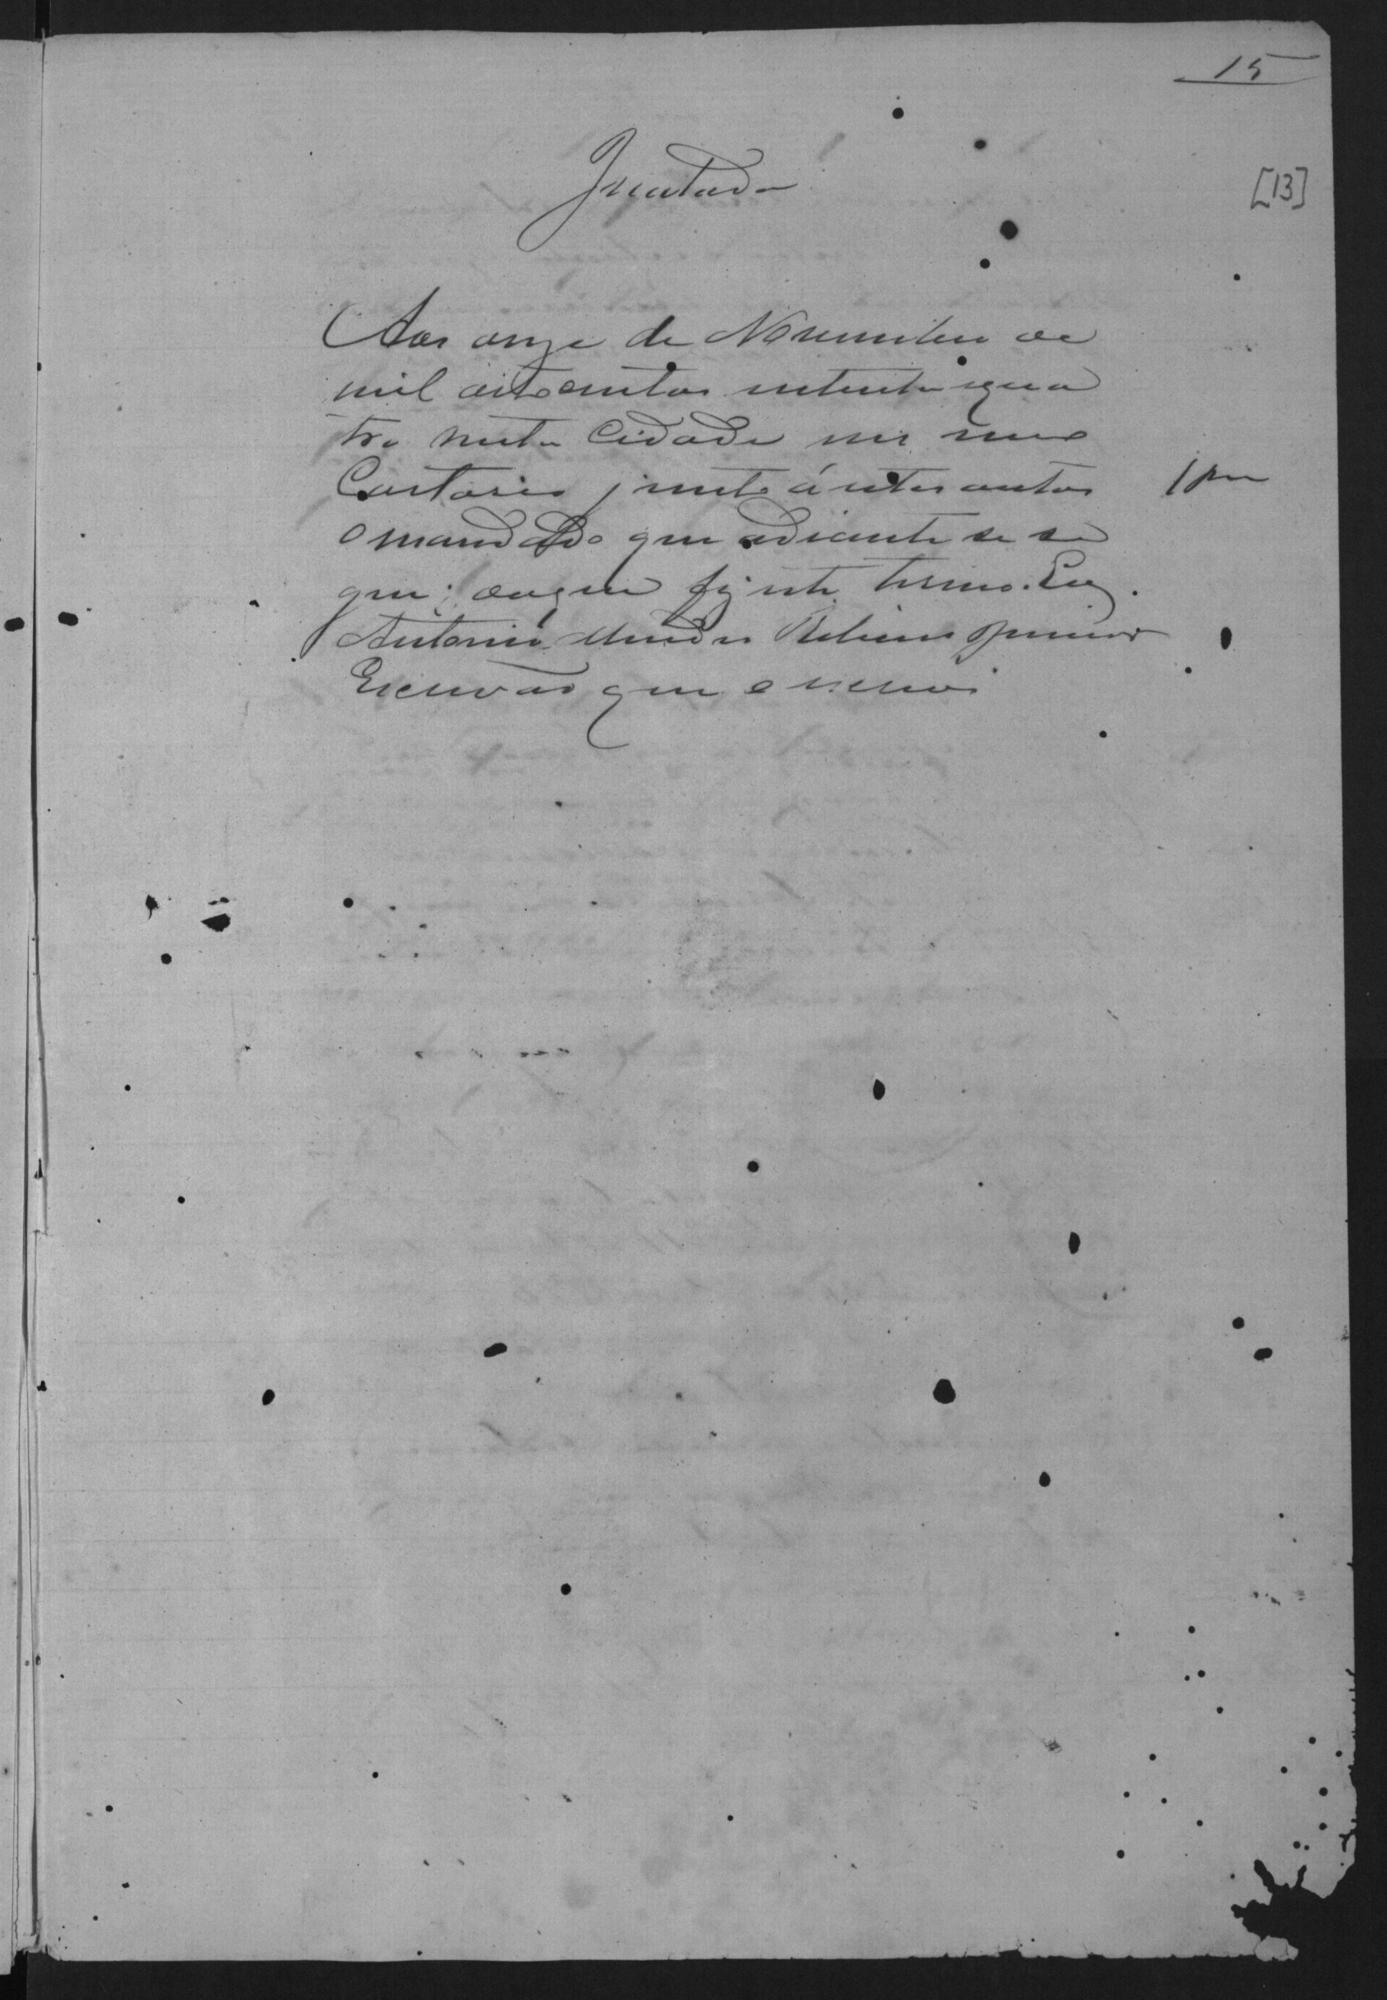 15
[13]
Juntada
Aos onze de Novembro de
mil oitocentos setenta equa
tro nesta Cidade em meu
Cartorio junto á estes autos
o mandado que adiante se se
gue; doque fiz este termo. Eu,
Antonio Mendes Ribeiro Junior
Escrivão que o escrevi